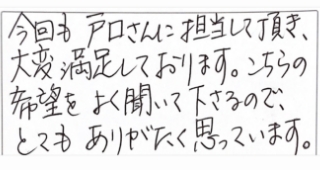 今回も戸口さんに担当して頂き、
大変満足しております。こちらの
希望をよく聞いて下さるので、
とてもありがたく思っています。